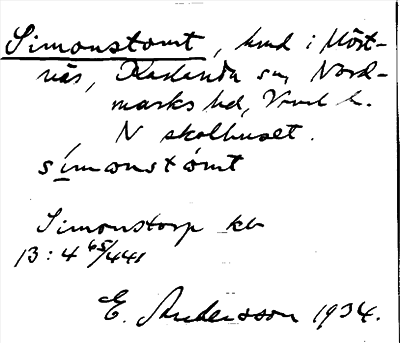 Simonstomt, hmd i Mört-
näs, Karlanda sn, Nord-
marks hd, Vrml l.
N skolhuset.
símonstòmt
Simonstorp kb
13:4 65/441
E. Andersson 1934.